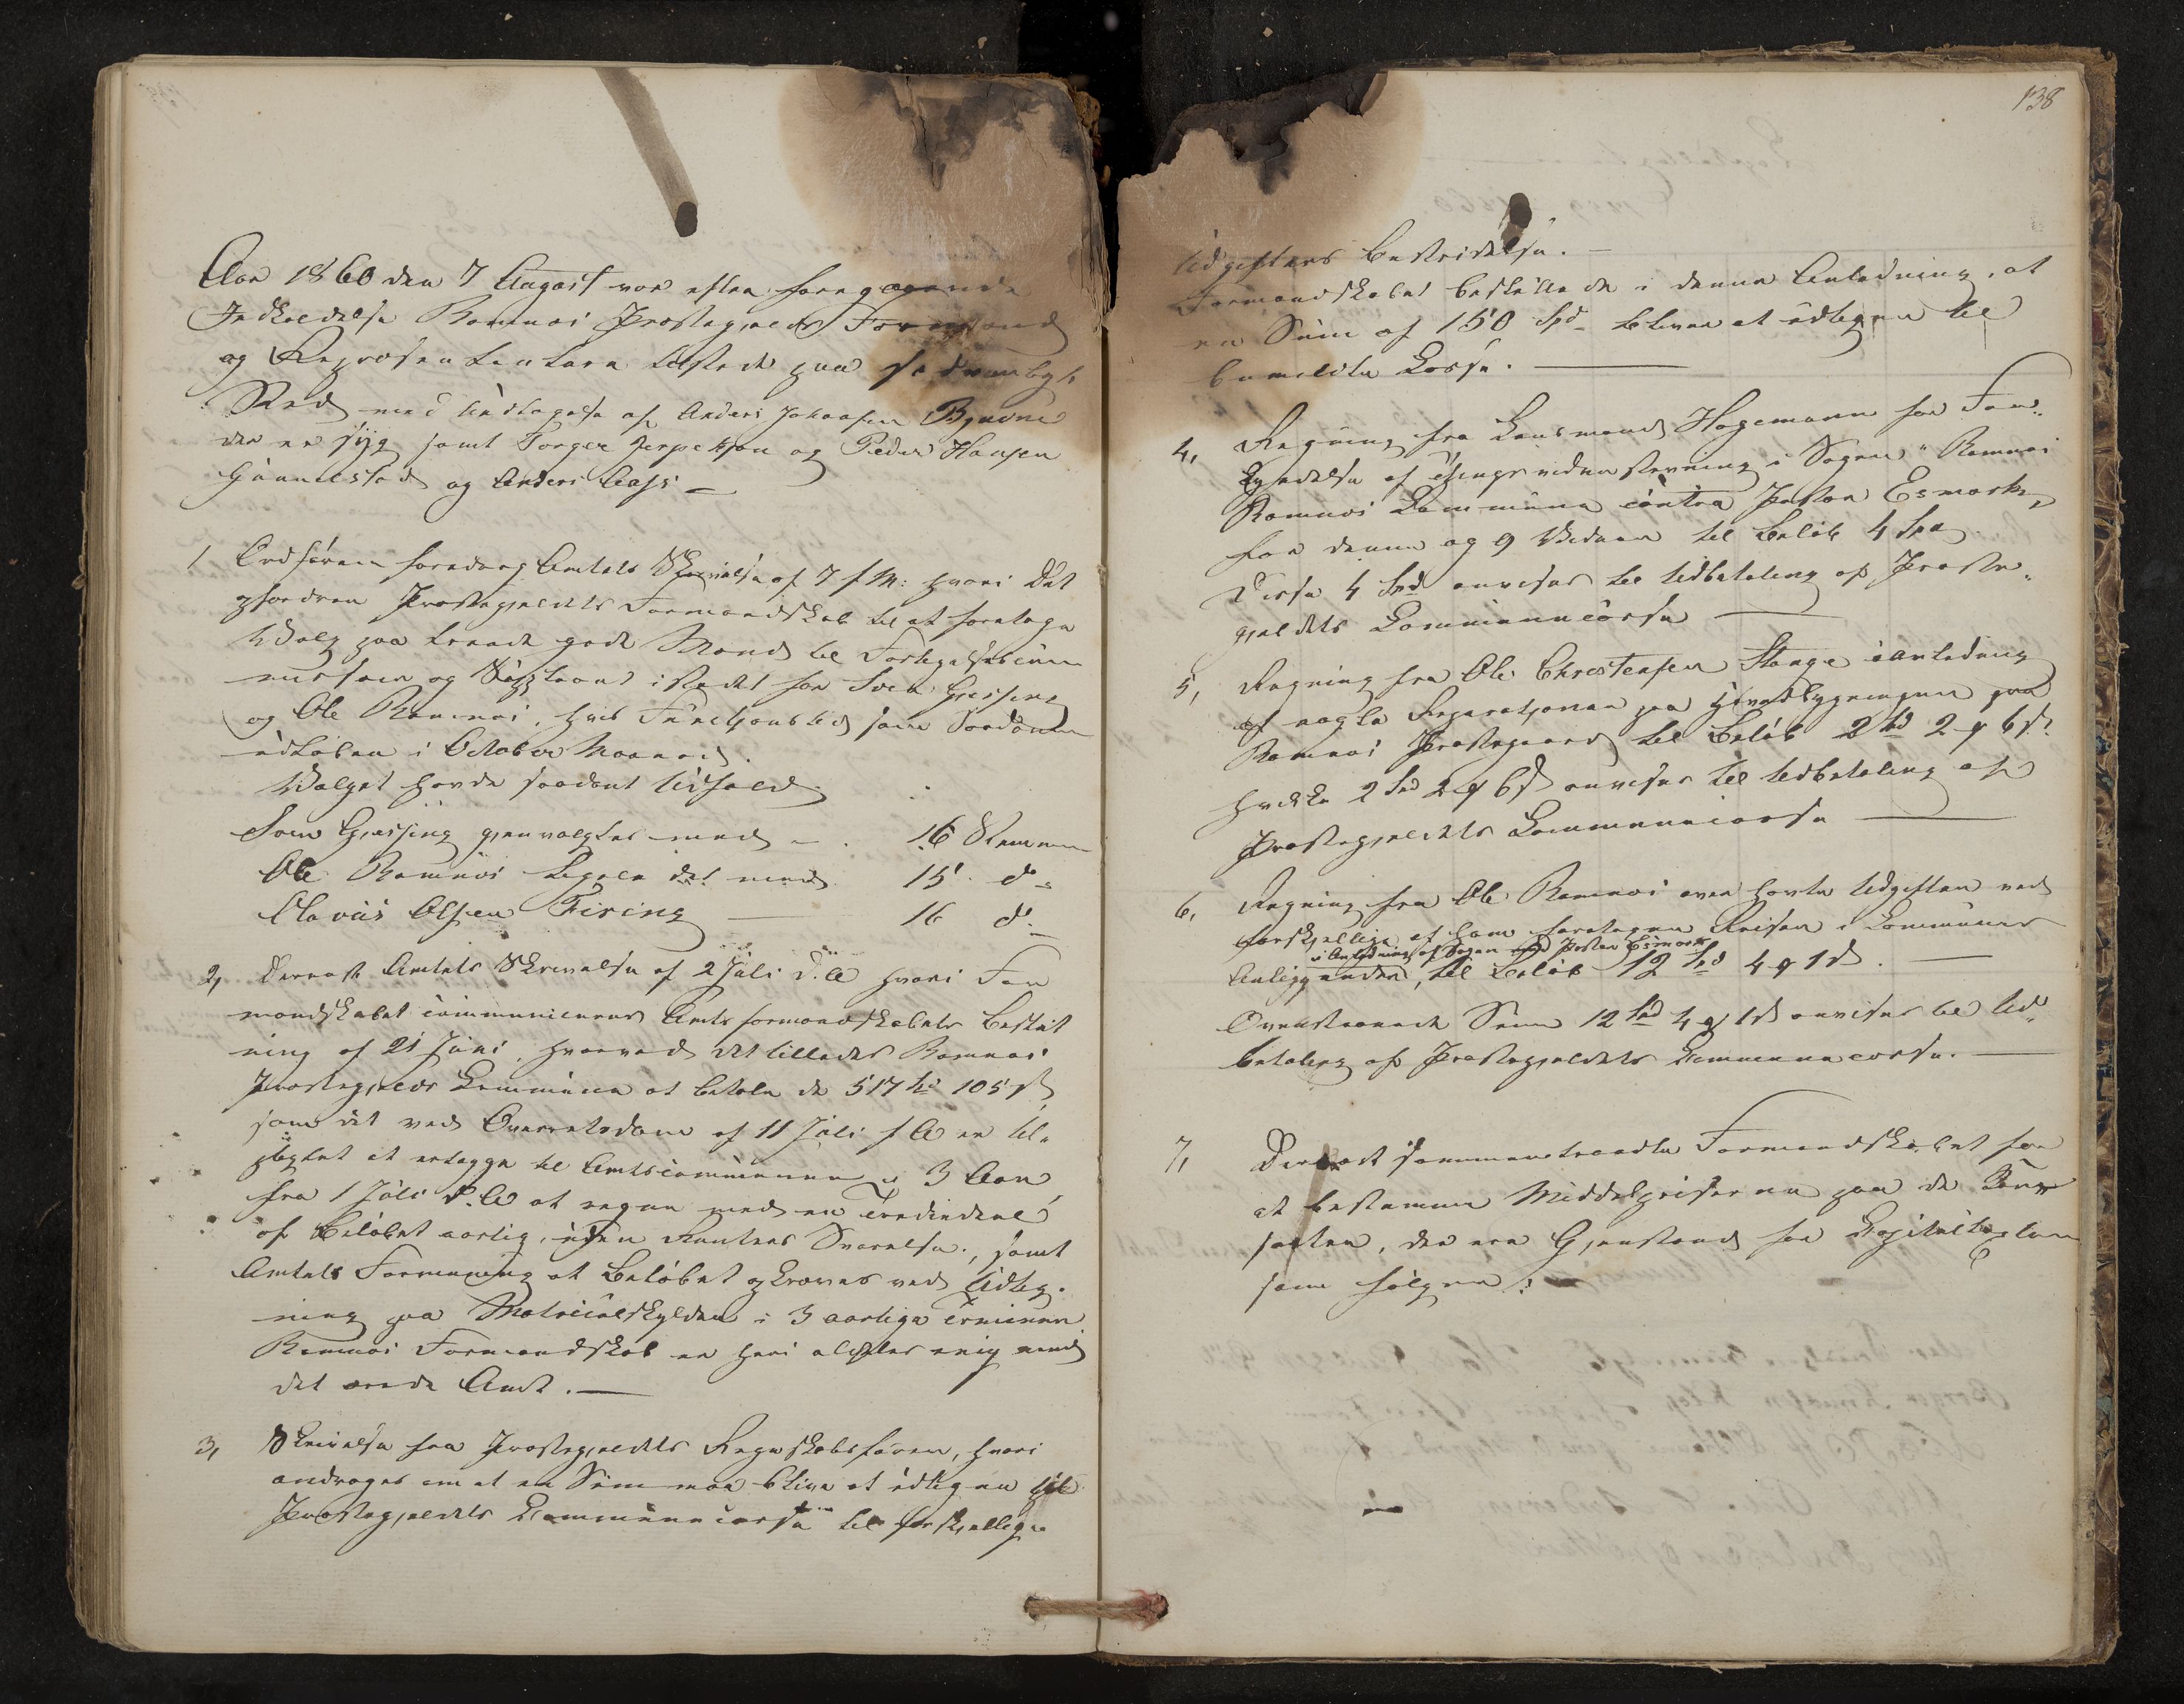 Aar 1860 den 7 August var efter foregaaende
Indkaldelse Ramnæs Præstegjelds Formænd
og Repræsentanter tilstede paa sædvanligt
Sted med Undtagelse af Anders Johansen Bjerøe
der er syg samt Torger Jespersen og Peder Hansen
Gunnestad og Anders Aasj –
1 Ordføren foredrog Amtets Skrivelse af 7 f. M: hvori det
opfordrer Præstegjeldets Formandskab til at foretage
Valg paa trende gode Mænd til Forligelsescom
missær og Suppleant istedet for Søren Gjessing
og Ole Ramnæs, hvis Functionstid som saadanne
udløber i October Maaned.
Valget havde saadant Udfald
Søren Gjessing gjenvalgtes med – 16 Stemmer
Ole Ramnæs ligeledes med 15 do
Clavius Olsen Firing 16 do
2, Dernæst Amtets Skrivelse af 2 Juli d. A hvori For
mandskabet communiceres Amtsformandskabets Beslut
ning af 21 Juni, hvorved det tillades Ramnæs
Præstegjelds Commune at betale de 517 Spd 105 s
som det ved Overretsdom af 11 Juli f A er til„
pligtet at erlægge til Amtscommunen i 3 Aar,
fra 1 Juli d. A at regne med en Trediedeel
af Beløbet aarlig, uden Renters Svarelse, samt
Amtets Formening at Beløbet opkræves ved Udlig„
ning paa Matriculskylden i 3 aarlige Terminer
Ramnæs Formandskab er heri aldeles enig med
det ærede Amt. –
3, Skrivelse fra Præstegjeldets Regnskabsfører, hvori
andrages om at en Sum maa blive at udligne til
Præstegjeldets Communecasse til forskjellige
138
Udgifters Bestridelse. –
Formandskabet besluttede i denne Anledning, at
en Sum af 150 Spd bliver at udligne til
bemeldte Casse. –
4, Regning fra Lensmand Hagemann for For„
kyndelse af Thingsvidnestevning i Sagen „Ramnæs
Ramnæs Commune contra Pastor Esmark,
for denne og 9 Vidner til Beløb 4 Spd.
Disse 4 Spd anvises til Udbetaling af Præste„
gjeldets Communecasse –
5, Regning fra Ole Christensen Stange i anledning
af nogle Reparationer paa Hovedbygningen paa
Ramnæs Præstegaard til Beløb 2 Spd 2 ort 6 s
hvilke 2 Spd 2 ort 6 s anvises til Udbetaling af
Præstegjeldets Communecasse –
6, Regning fra Ole Ramnæs over havte Udgifter ved
forskjellige af ham foretagne Reiser i Communens
i Anledning af Sagen mod Pastor Esmark
Anliggender, til Beløb 12 Spd 4 ort 1 s. –
Ovenstaaende Sum 12 Spd 4 ort 1 s anvises til Ud„
betaling af Præstegjeldets Communecasse. –
7, Dernæst sammentraadte Formandskabet for
at bestemme Middelpriserne paa de Korn
sorter, der ere Gjenstand for Capitelstaxten
som følger: –